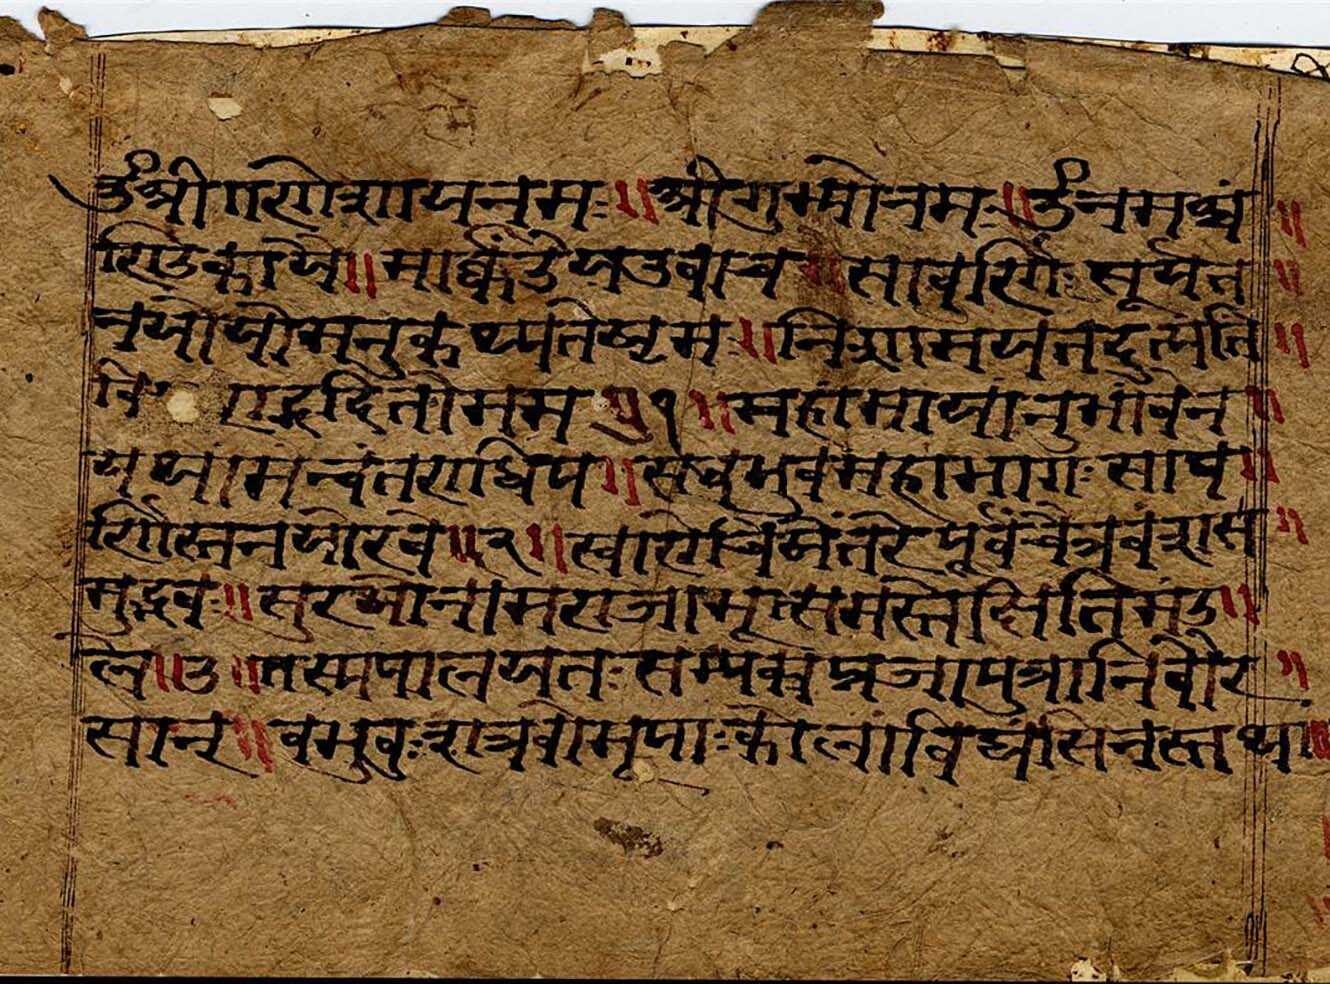 ॐ श्रीगणेशाय नमः ॥ श्रीगुरुभ्यो नमः ॥ ॐ नमश्चं ॥
णिडकायै ॥ मार्कंडेय उवाच ॥ सावर्णिः सूर्यत ॥
नयो यो मनु कथ्यतेष्टमः ॥ निशामय तदुत्पत्तिं ॥
वि गद्गदितो मम ॥ १ ॥ महामायानुभावेन ॥
यथा मन्वंतराधिप ॥ स बभुव महाभागः साव ॥
र्णिस्तनयो रवे ॥ २ ॥ स्वारोचिषेंतरे पूर्वं चैत्रवंशस ॥
मुद्भवः ॥ सुरथो नाम राजाभूत्समस्ते क्षितिमंड ॥
ले ॥ ३ ॥ तस्य पालयतः सम्यक् प्रजा पुत्रानिवौर ॥
सान् ॥ बभुवुः शत्रवो भूपाः कोलाविध्वंसिनस्तथा ॥